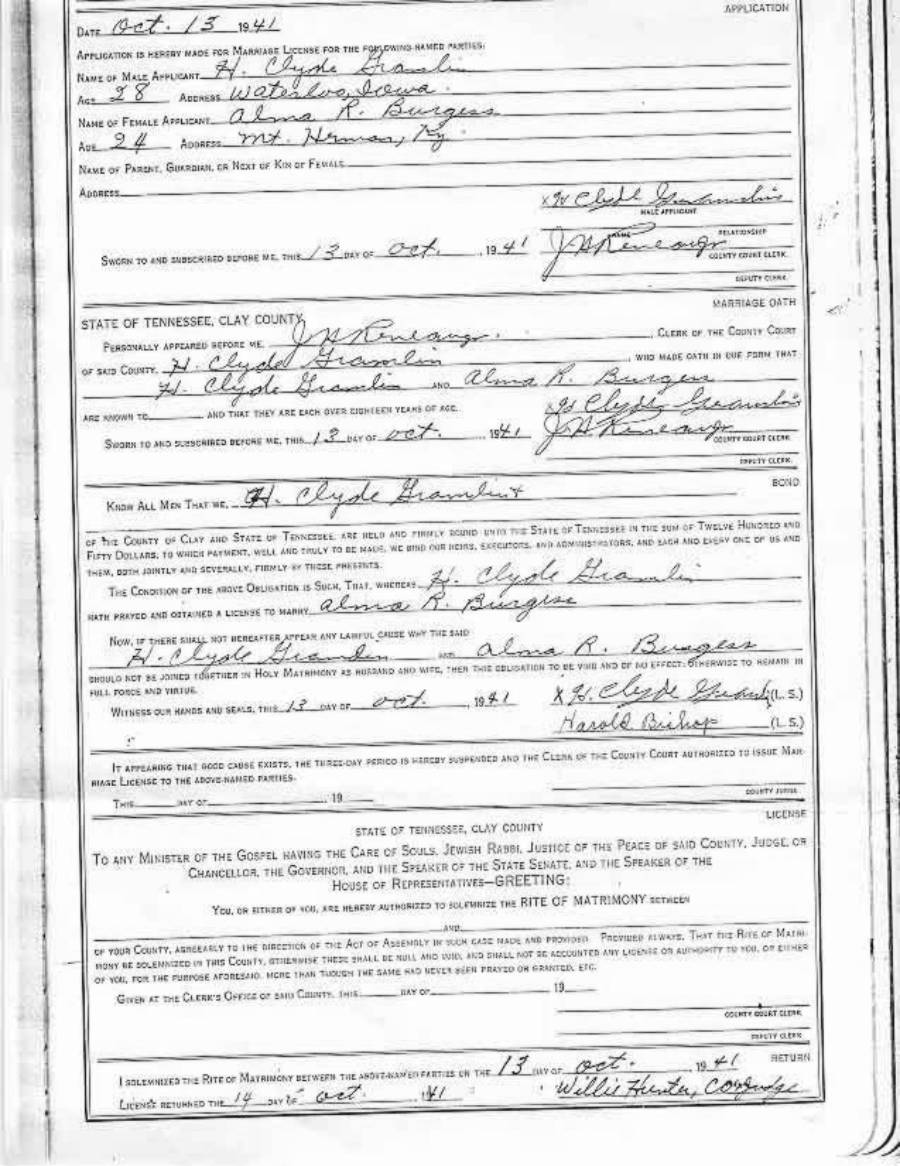 APPLICATION
DATE Oct. 13 1941
APPLICATION IS HEREBY MADE FOR MARRIAGE LICENSE FOR THE FOLLOWING NAMED PARTIES:
NAME OF MALE APPLICANT H. Clyde Gramlin
AGE 28 ADDRESS Waterloo, Iowa.
NAME OF FEMALE APPLICANT Alma R. Burgess
AGE 24 ADDRESS Mt. Herman, Ky.
NAME OF PARENT, GUARDIAN, OR NEXT OF KIN OF FEMALE
ADDRESS
x H Clyde Gramlin
MALE APPLICANT
NAME RELATIONSHIP
SWORN TO AND SUBSCRIBED BEFORE ME, THIS 13 DAY OF Oct. 1941
COUNTY COURT CLERK.
DEPUTY CLERK.
MARRIAGE OATH
STATE OF TENNESSEE, CLAY COUNTY
PERSONALLY APPEARED BEFORE ME, CLERK OF THE COUNTY COURT
OF SAID COUNTY, H. Clyde Gramlin, WHO MADE OATH IN DUE FORM THAT
H. Clyde Gramlin AND Alma R. Burgess
ARE KNOWN TO AND THAT THEY ARE EACH OVER EIGHTEEN YEARS OF AGE.
x H Clyde Gramlin
SWORN TO AND SUBSCRIBED BEFORE ME, THIS 13 DAY OF Oct. , 1941
COUNTY COURT CLERK
DEPUTY CLERK.
BOND
KNOW ALL MEN THAT WE, H. Clyde Gramlin +
OF THE COUNTY OF CLAY AND STATE OF TENNESSEE, ARE HELD AND FIRMLY BOUND UNTO THE STATE OF TENNESSEE IN THE SUM OF TWELVE HUNDRED AND
FIFTY DOLLARS, TO WHICH PAYMENT, WELL AND TRULY TO BE MADE, WE BIND OUR HEIRS, EXECUTORS, AND ADMINISTRATORS, AND EACH AND EVERY ONE OF US AND
THEM, BOTH JOINTLY AND SEVERALLY, FIRMLY BY THESE PRESENTS.
THE CONDITION OF THE ABOVE OBLIGATION IS SUCH, THAT, WHEREAS H. Clyde Gramlin
HATH PRAYED AND OBTAINED A LICENSE TO MARRY Alma R. Burgess
NOW, IF THERE SHALL NOT HEREAFTER APPEAR ANY LAWFUL CAUSE WHY THE SAID
H. Clyde Gramlin AND Alma R. Burgess
SHOULD NOT BE JOINED TOGETHER IN HOLY MATRIMONY AS HUSBAND AND WIFE, THEN THIS OBLIGATION TO BE VOID AND OF NO EFFECT; OTHERWISE TO REMAIN IN
FULL FORCE AND VIRTUE.
WITNESS OUR HANDS AND SEALS, THIS 13 DAY OF Oct. , 1941 X H. Clyde Gramlin (L. S.)
Harold Bishop (L. S.)
IT APPEARING THAT GOOD CAUSE EXISTS, THE THREE-DAY PERIOD IS HEREBY SUSPENDED AND THE CLERK OF THE COUNTY COURT AUTHORIZED TO ISSUE MAR-
RIAGE LICENSE TO THE ABOVE-NAMED PARTIES.
COUNTY JUDGE
THIS DAY OF , 19
LICENSE
STATE OF TENNESSEE, CLAY COUNTY
TO ANY MINISTER OF THE GOSPEL HAVING THE CARE OF SOULS, JEWISH RABBI, JUSTICE OF THE PEACE OF SAID COUNTY, JUDGE, OR
CHANCELLOR, THE GOVERNOR, AND THE SPEAKER OF THE STATE SENATE, AND THE SPEAKER OF THE
HOUSE OF REPRESENTATIVES—GREETING:
YOU, OR EITHER OF YOU, ARE HEREBY AUTHORIZED TO SOLEMNIZE THE RITE OF MATRIMONY BETWEEN
AND
OF YOUR COUNTY, AGREEABLY TO THE DIRECTION OF THE ACT OF ASSEMBLY IN SUCH CASE MADE AND PROVIDED. PROVIDED ALWAYS, THAT THE RITE OF MATRI-
MONY BE SOLEMNIZED IN THIS COUNTY, OTHERWISE THESE SHALL BE NULL AND VOID, AND SHALL NOT BE ACCOUNTED ANY LICENSE OR AUTHORITY TO YOU, OR EITHER
OF YOU, FOR THE PURPOSE AFORESAID, MORE THAN THOUGH THE SAME HAD NEVER BEEN PRAYED OR GRANTED, ETC.
GIVEN AT THE CLERK'S OFFICE OF SAID COUNTY, THIS DAY OF 19
COUNTY COURT CLERK
DEPUTY CLERK
RETURN
I SOLEMNIZED THE RITE OF MATRIMONY BETWEEN THE ABOVE-NAMED PARTIES ON THE 13 DAY OF Oct. 1941
LICENSE RETURNED THE 14 DAY OF Oct. , 1941 Willie Hunter, Co Judge